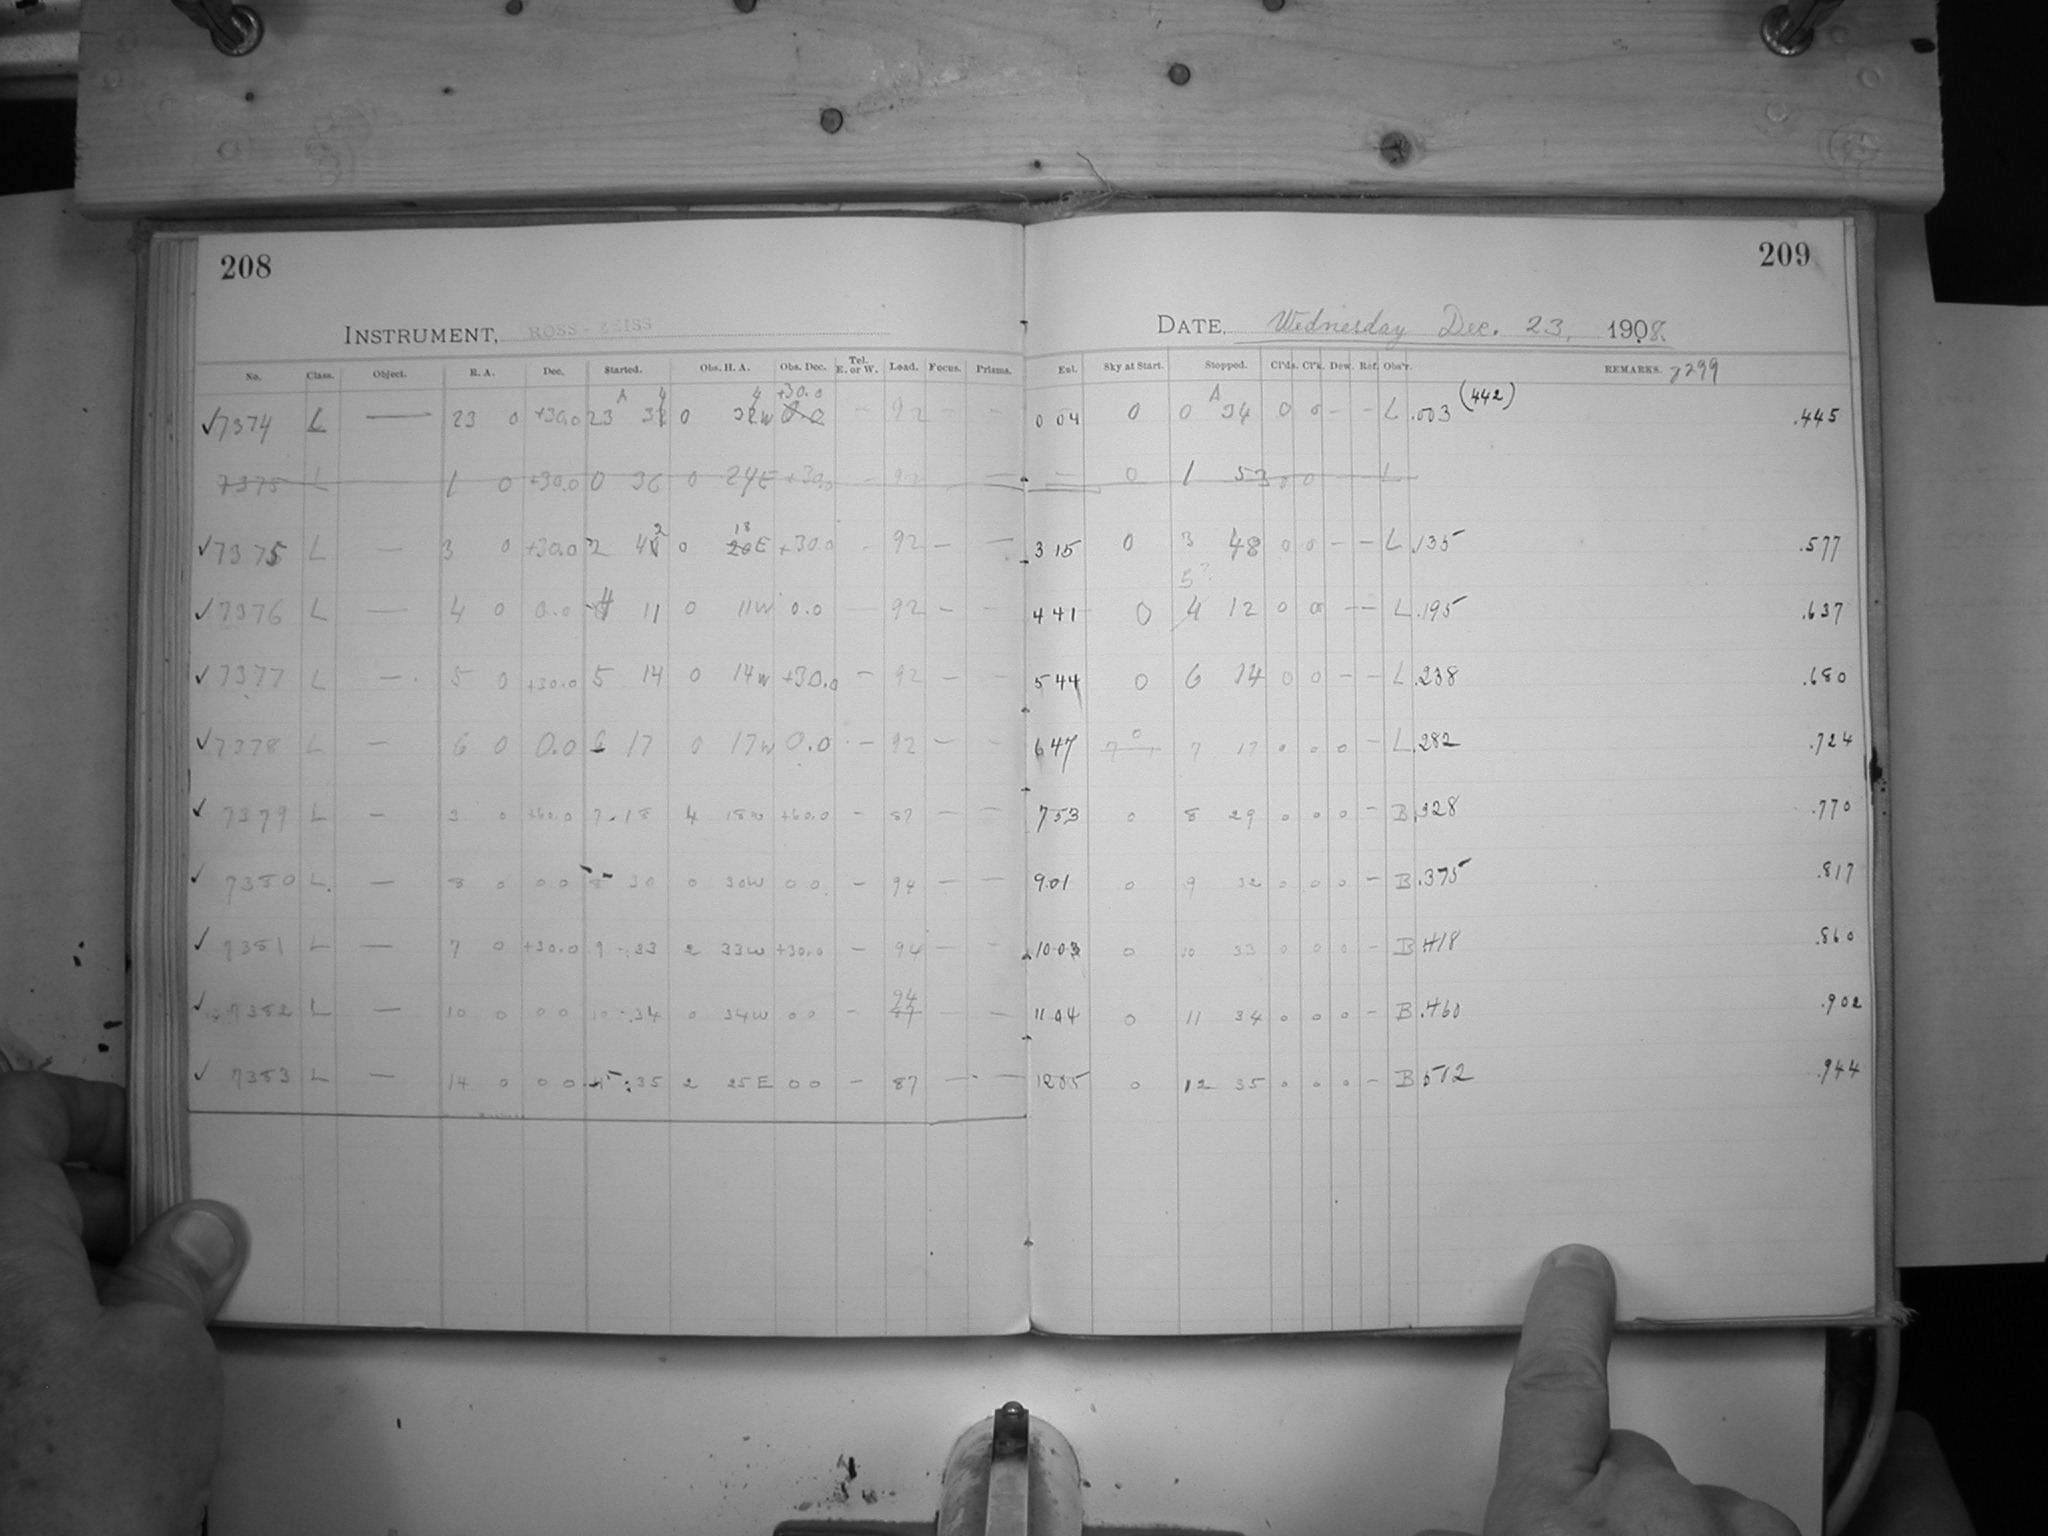 208
209
INSTRUMENT, ROSS-ZEISS
DATE, Wednesday Dec. 23, 1908.
No. Class. Object. R. A. Dec. Started. Obs. H. A. Obs. Dec. Tel. E. or W. Load. Focus. Prisms. Ext. Sky at Start. Stopped. Cl'ds. Cl'k. Dew. Ref. Obs'r. REMARKS. 7299
A 4 4 +30.0 A (442)
✓7374 L — 23 0 +30.0 23 32 0 32W 0.0 — 92 — — 0 04 0 0 34 0 0 — — L .003 .445
7375 L 1 0 +30.0 0 36 0 24E +30.0 — 92 — — 0 1 53 0 0 — — L
2 18
✓7375 L — 3 0 +30.0 2 0 20E +30.0 — 92 — — 3 15 0 3 48 0 0 — — L .135 .577
5?
✓7376 L — 4 0 0.0 4 11 0 11W 0.0 — 92 — — 4 41 0 4 12 0 0 — — L .195 .637
✓7377 L — 5 0 +30.0 5 14 0 14W +30.0 — 92 — — 5 44 0 6 14 0 0 — — L .238 .680
✓7378 L — 6 0 0.0 6 17 0 17W 0.0 — 92 — — 6 47 0 7 17 0 0 0 — L .282 .724
✓ 7379 L — 3 0 +60.0 7 18 4 18W +60.0 — 87 — — 7 53 0 8 29 0 0 0 — B .328 .770
✓ 7380 L — 8 0 0 0 8 30 0 30W 0 0 — 94 — — 9 01 0 9 32 0 0 0 — B .375 .817
✓ 7381 L — 7 0 +30.0 9 33 2 33W +30.0 — 94 — — 10 03 0 10 33 0 0 0 — B .418 .860
94
✓ 7382 L — 10 0 0 0 10 34 0 34W 0 0 — 87 — — 11 04 0 11 34 0 0 0 — B .460 .902
✓ 7383 L — 14 0 0 0 35 2 25E 0 0 — 87 — — 12 05 0 12 35 0 0 0 — B 502 .944